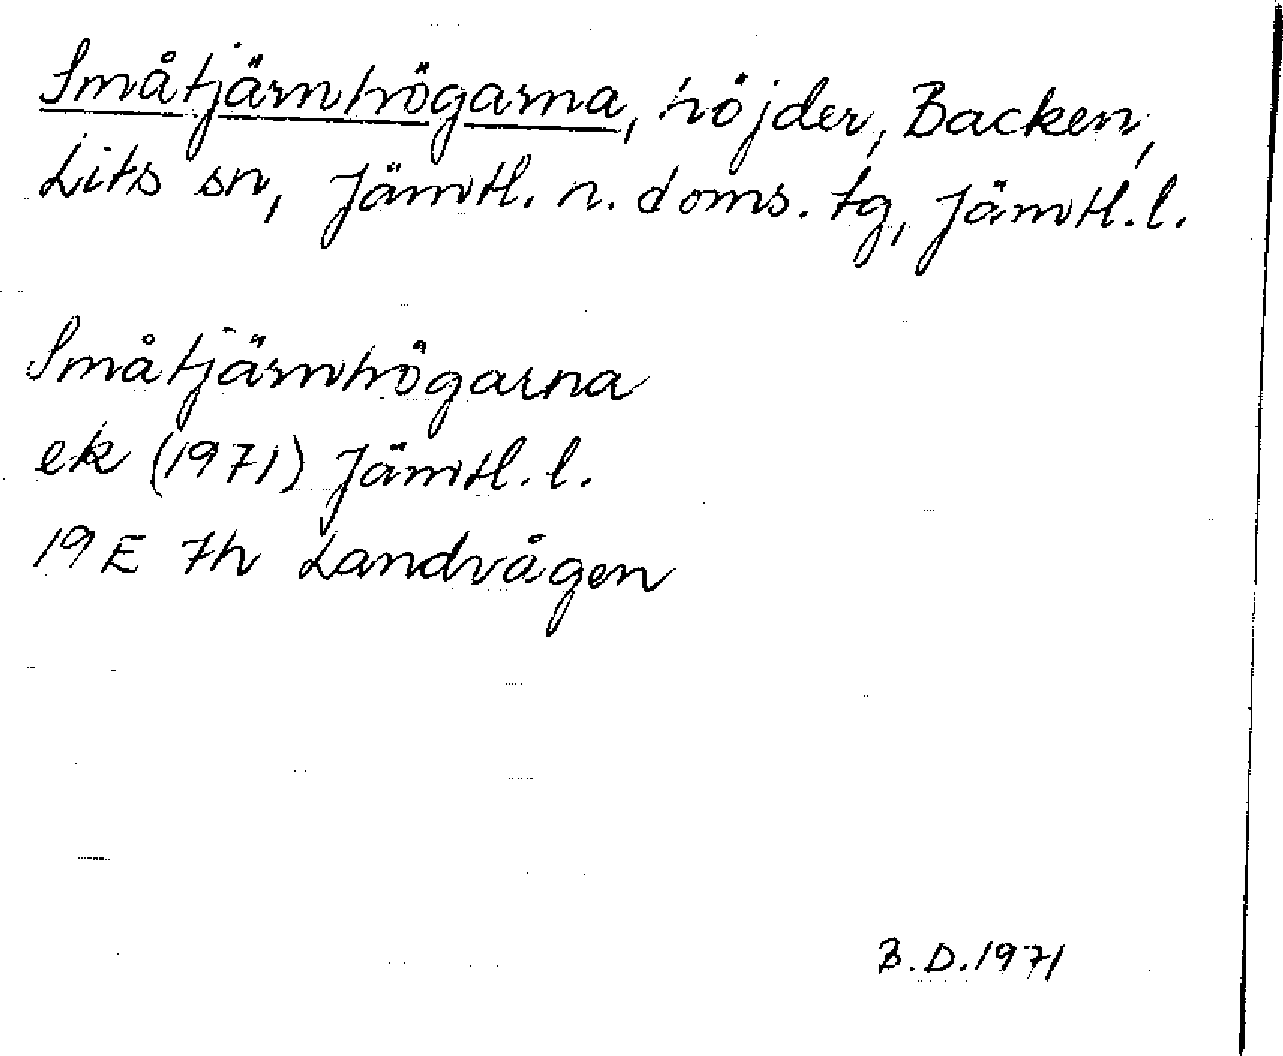 Småtjärnhögarna, höjder, Backen,
Lits sn, Jämtl. n. doms. tg, Jämtl. l.
Småtjärnhögarna
ek (1971) Jämtl. l.
19 E 7h Landvågen
B.D. 1971